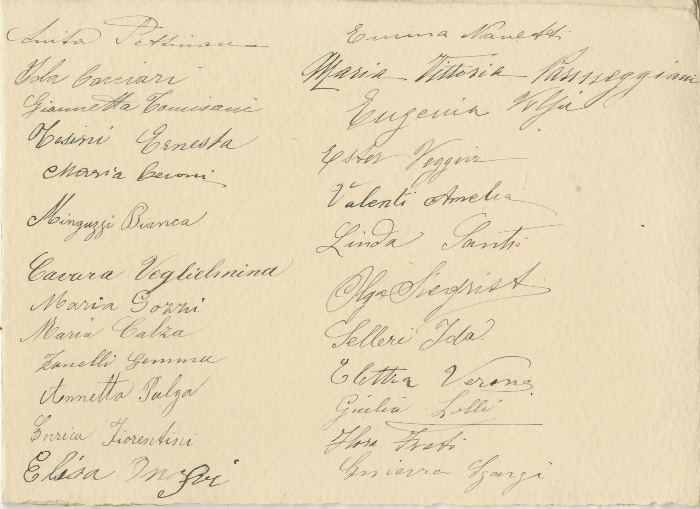 Anita
Ida Cacciari
Giannetta Tomisani
Tesini Ernesta
Maria Ceroni
Minguzzi Bianca
Cavara Veglielmina
Maria Gozzi
Maria Calza
Zanelli Gemma
Annetta Pulga
Enrica Fiorentini
Elisa
Emma Nanetti
Maria Vittoria Parmeggiani
Eugenia
Ester Veggiv
Valenti Amelia
Linda Santi
Olga Siegrist
Selleri Ida
Elettra Verona
Giulia Lolli
Flora Frati
Ginevra Sgargi